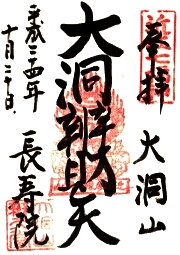 奉拝
大洞山
大洞辨財天
平成二十四年
十月二十日
長寿院